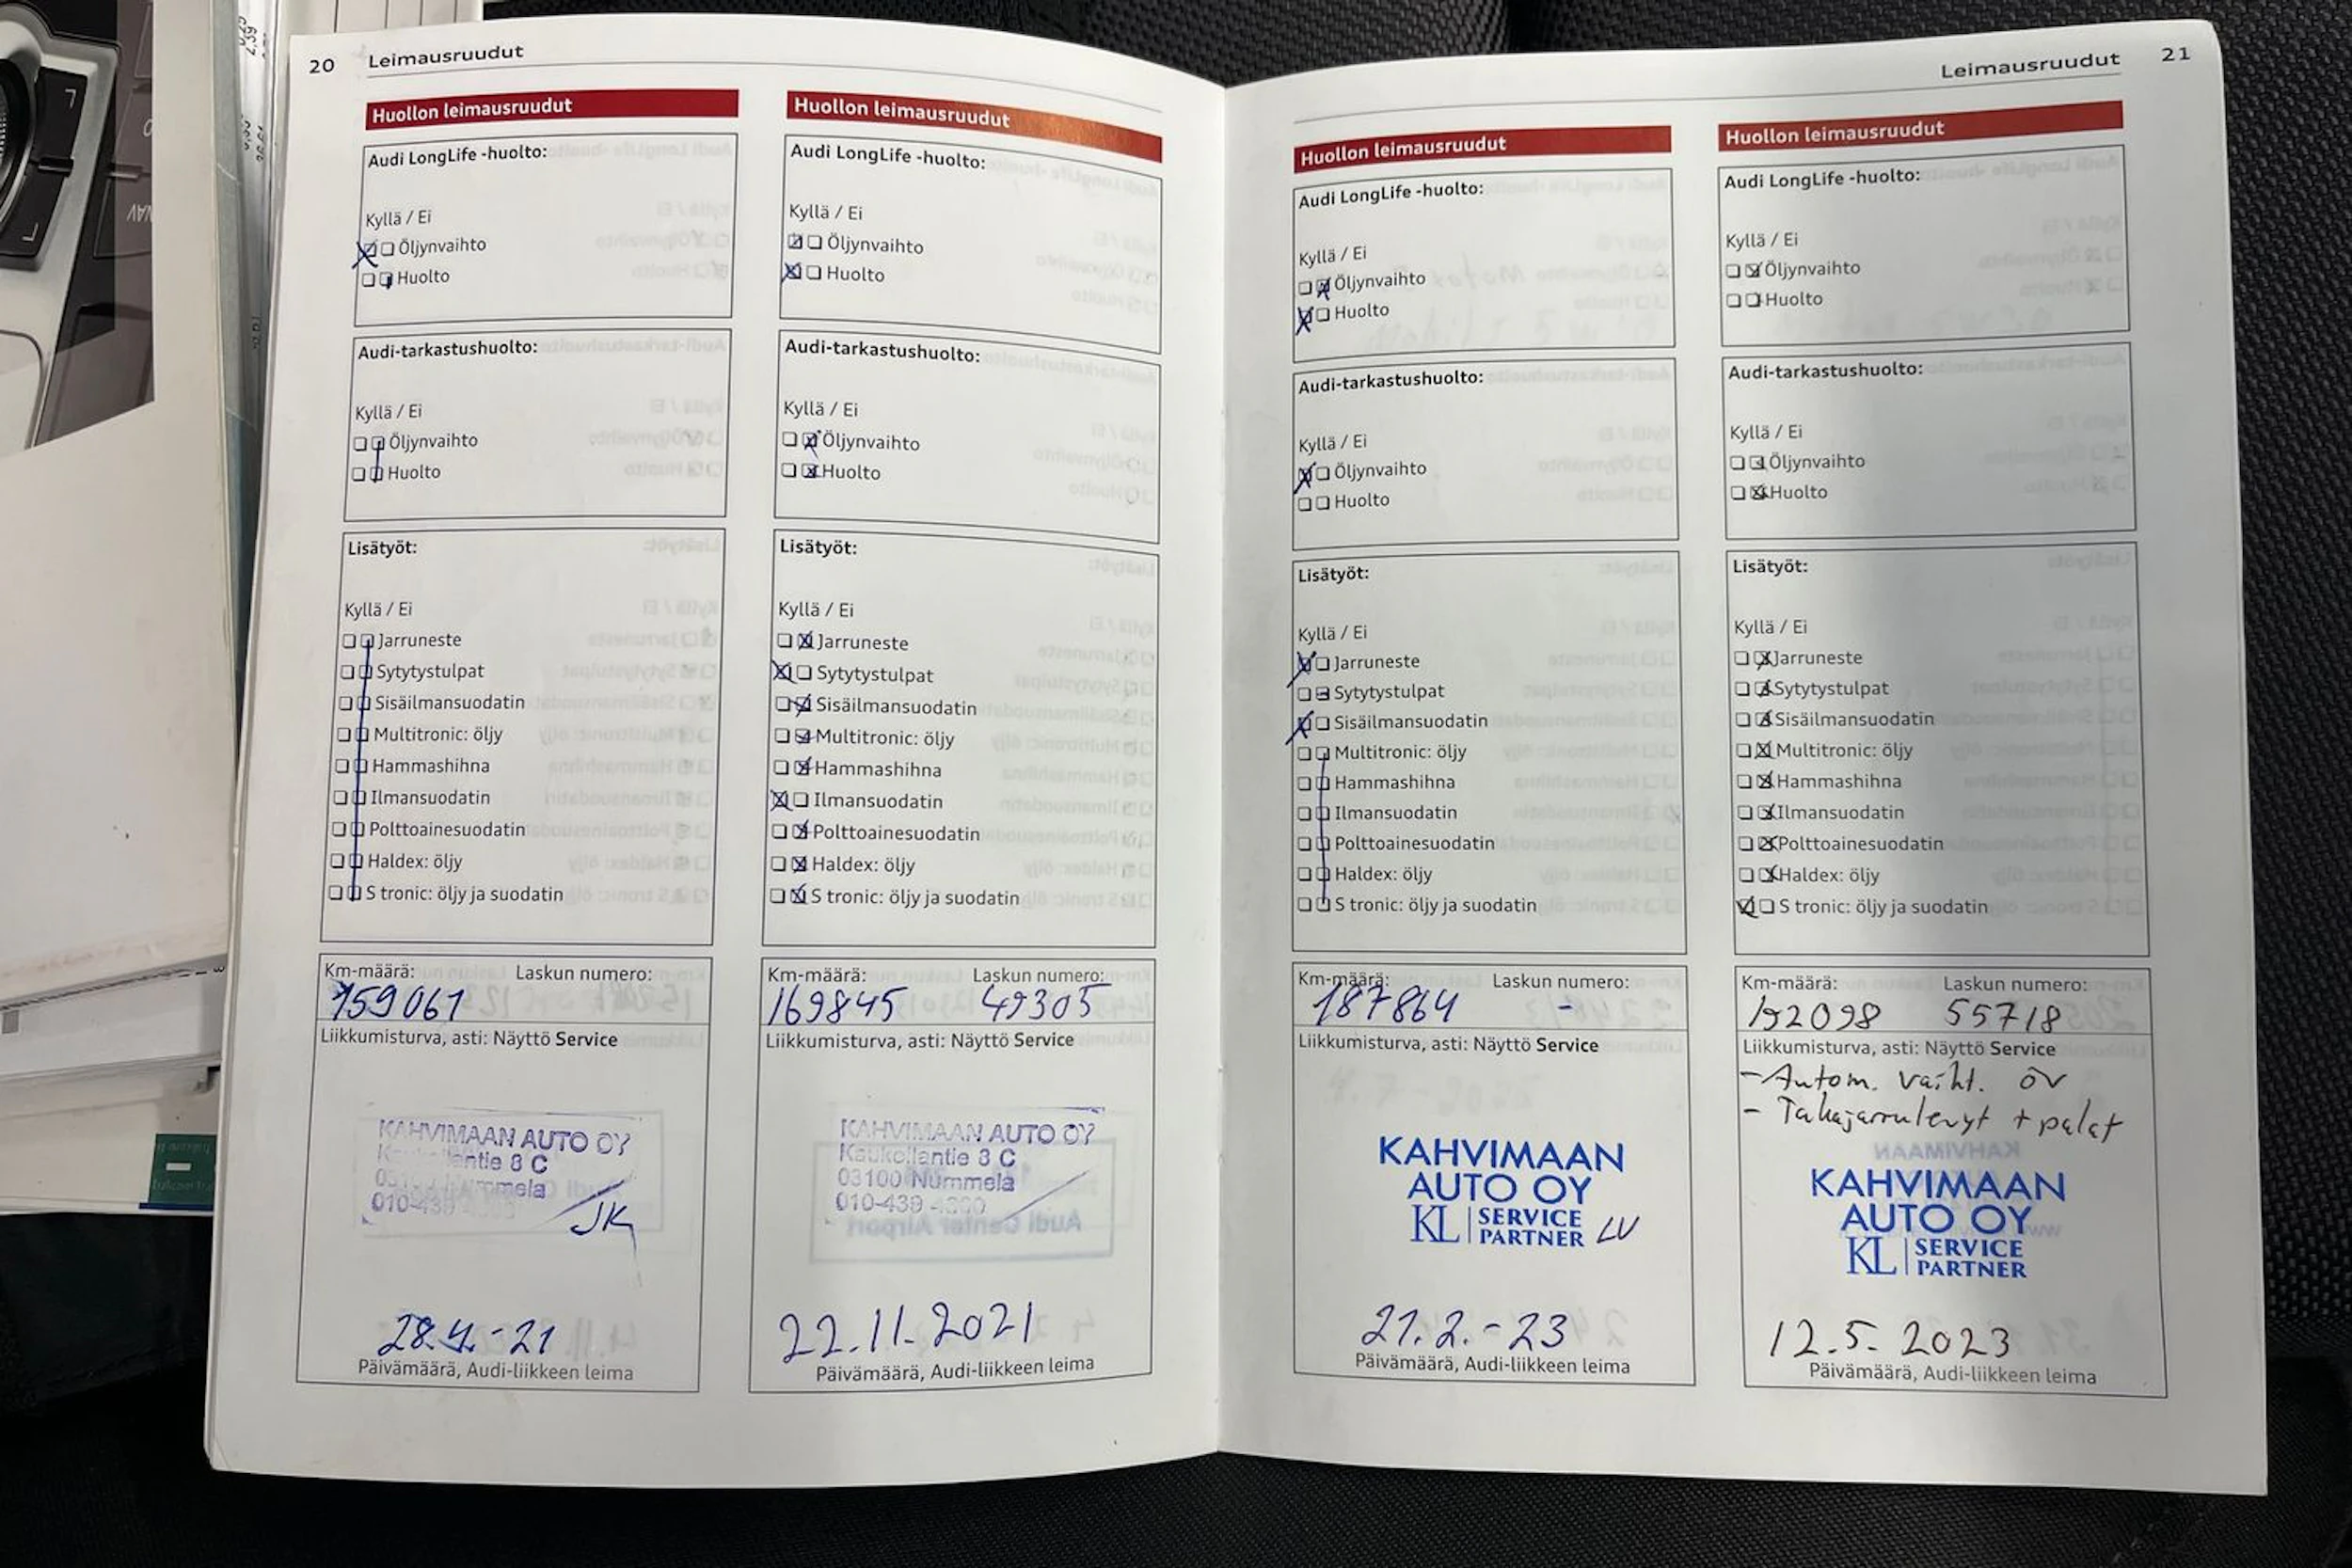 20 Leimausruudut
Huollon leimausruudut
Audi LongLife -huolto:
Kyllä / Ei
Öljynvaihto
Huolto
Audi-tarkastushuolto:
Kyllä / Ei
Öljynvaihto
Huolto
Lisätyöt:
Kyllä / Ei
Jarruneste
Sytytystulpat
Sisäilmansuodatin
Multitronic: öljy
Hammashihna
Ilmansuodatin
Polttoainesuodatin
Haldex: öljy
S tronic: öljy ja suodatin
Km-määrä: Laskun numero:
159061
Liikkumisturva, asti: Näyttö Service
KAHVIMAAN AUTO OY
8 C
Nummela
010-439
JK
28.4.-21
Päivämäärä, Audi-liikkeen leima
Huollon leimausruudut
Audi LongLife -huolto:
Kyllä / Ei
Öljynvaihto
Huolto
Audi-tarkastushuolto:
Kyllä / Ei
Öljynvaihto
Huolto
Lisätyöt:
Kyllä / Ei
Jarruneste
Sytytystulpat
Sisäilmansuodatin
Multitronic: öljy
Hammashihna
Ilmansuodatin
Polttoainesuodatin
Haldex: öljy
S tronic: öljy ja suodatin
Km-määrä: Laskun numero:
169845 49305
Liikkumisturva, asti: Näyttö Service
KAHVIMAAN AUTO OY
8 C
03100 Nummela
010-439
22.11.2021
Päivämäärä, Audi-liikkeen leima
Leimausruudut 21
Huollon leimausruudut
Audi LongLife -huolto:
Kyllä / Ei
Öljynvaihto
Huolto
Audi-tarkastushuolto:
Kyllä / Ei
Öljynvaihto
Huolto
Lisätyöt:
Kyllä / Ei
Jarruneste
Sytytystulpat
Sisäilmansuodatin
Multitronic: öljy
Hammashihna
Ilmansuodatin
Polttoainesuodatin
Haldex: öljy
S tronic: öljy ja suodatin
Km-määrä: Laskun numero:
187864 -
Liikkumisturva, asti: Näyttö Service
KAHVIMAAN
AUTO OY
KL SERVICE
PARTNER LV
21.2.-23
Päivämäärä, Audi-liikkeen leima
Huollon leimausruudut
Audi LongLife -huolto:
Kyllä / Ei
Öljynvaihto
Huolto
Audi-tarkastushuolto:
Kyllä / Ei
Öljynvaihto
Huolto
Lisätyöt:
Kyllä / Ei
Jarruneste
Sytytystulpat
Sisäilmansuodatin
Multitronic: öljy
Hammashihna
Ilmansuodatin
Polttoainesuodatin
Haldex: öljy
S tronic: öljy ja suodatin
Km-määrä: Laskun numero:
192098 55718
Liikkumisturva, asti: Näyttö Service
- Autom. vaiht. öv
- Takajarrulevyt + palat
KAHVIMAAN
AUTO OY
KL SERVICE
PARTNER
12.5.2023
Päivämäärä, Audi-liikkeen leima